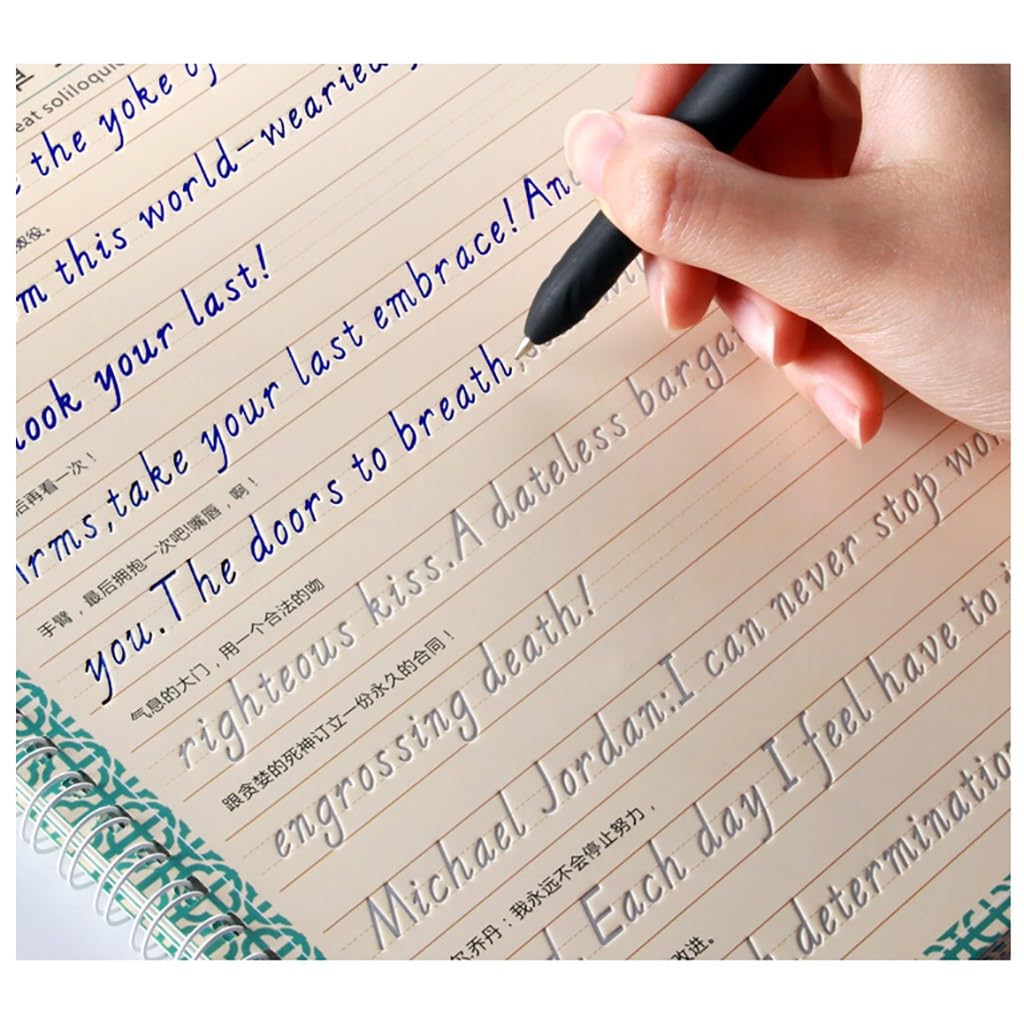 eat soliloqui
the yoke of
m this world-wearied
效役。
look your last!
后再看一次！
arms,take your last embrace! And
手臂，最后拥抱一次吧!嘴唇，啊！
you.The doors to breath,
气息的大门，用一个合法的吻
righteous kiss.A dateless bargai
跟贪婪的死神订立一份永久的合同！
engrossing death!
Michael Jordan:I can never stop wor
尔.乔丹：我永远不会停止努力，
Each day I feel have to
改进。
determinatio